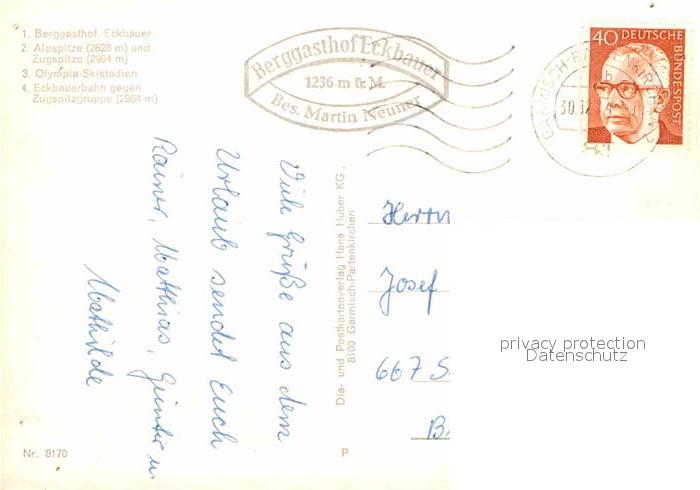 1. Berggasthof Eckbauer
2. Alpspitze (2628 m) und
Zugspitze (2964 m)
3. Olympia-Skistadion
4. Eckbauerbahn gegen
Zugspitzgruppe (2964 m)
Berggasthof Eckbauer
1236 m ü. M.
Bes. Martin Neuner
40 DEUTSCHE
BUNDESPOST
GARMISCH-PARTENKIRCHEN 2
b
30.12
Viele Grüße aus dem
Urlaub sendet Euch
Rainer, Matthias, Günter u.
Mathilde
Dia- und Postkartenverlag Hans Huber KG.,
8100 Garmisch-Partenkirchen
Herrn
Josef
667 S
B
privacy protection
Datenschutz
Nr. 8170
P